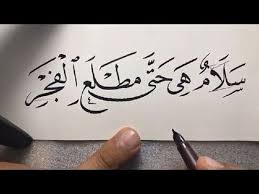 سِلَامٌ هِيَ حَتَّى مَطْلَعِ الْفَجْرِ